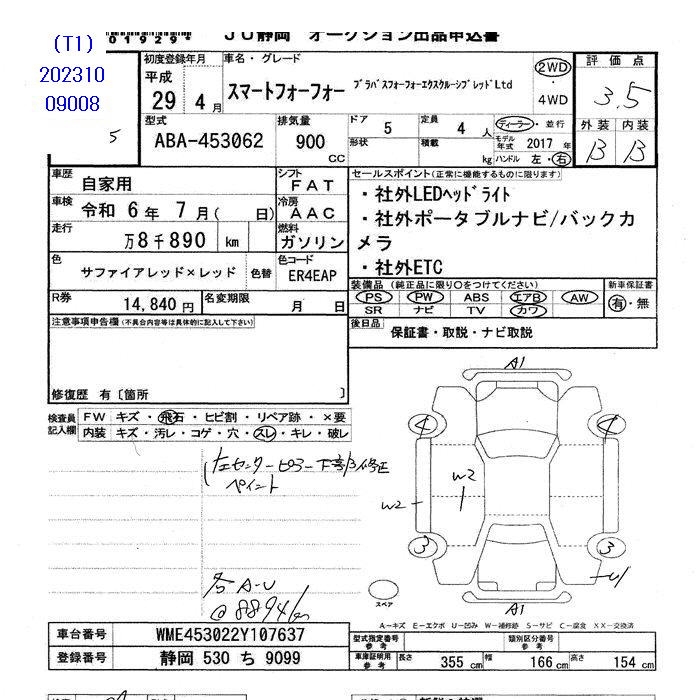 (T1)
202310
09008
01929
JU静岡 オークション出品申込書
初度登録年月
車名・グレード
平成
29 4月
スマートフォーフォー
ブラバスフォーフォーエクスクルーシブレッドLtd
2WD
・
4WD
評価点
3.5
5
型式
ABA-453062
排気量
900
CC
ドア
5
定員
4 人
形状
積載
kg
ディーラー・並行
モデル年式 2017 年
ハンドル 左・右
外装 内装
B B
車歴
自家用
シフト
FAT
車検
令和 6年 7月( 日)
冷房
AAC
走行
万8千890 km
燃料
ガソリン
色
サファイアレッド×レッド
色替
色コード
ER4EAP
R券
14,840円
名変期限
月 日
セールスポイント(正常に機能するものに限ります)
・社外LEDヘッドライト
・社外ポータブルナビ/バックカ
メラ
・社外ETC
装備品 (純正品に限り○をつけてください)
新車保証書
PS PW ABS エアB AW
SR ナビ TV カワ
有・無
後日品
保証書・取説・ナビ取説
注意事項申告欄(不具合内容等は具体的に記入して下さい)
修復歴 有〔箇所 〕
検査員
記入欄
FW キズ・飛石・ヒビ割・リペア跡・×要
内装 キズ・汚レ・コゲ・穴・スレ・キレ・破レ
左センターピラー下部修正
ペイント
A1
4 4
W2
W2
3 3
U1
A1
スペア
A-キズ E-エクボ U-凹み W-補修跡 S-サビ C-腐食 XX-交換済
車台番号
WME453022Y107637
登録番号
静岡 530 ち 9099
型式指定番号
参考
類別区分番号
参考
車庫証明用
参考
長さ 355 cm 幅 166 cm 高さ 154 cm